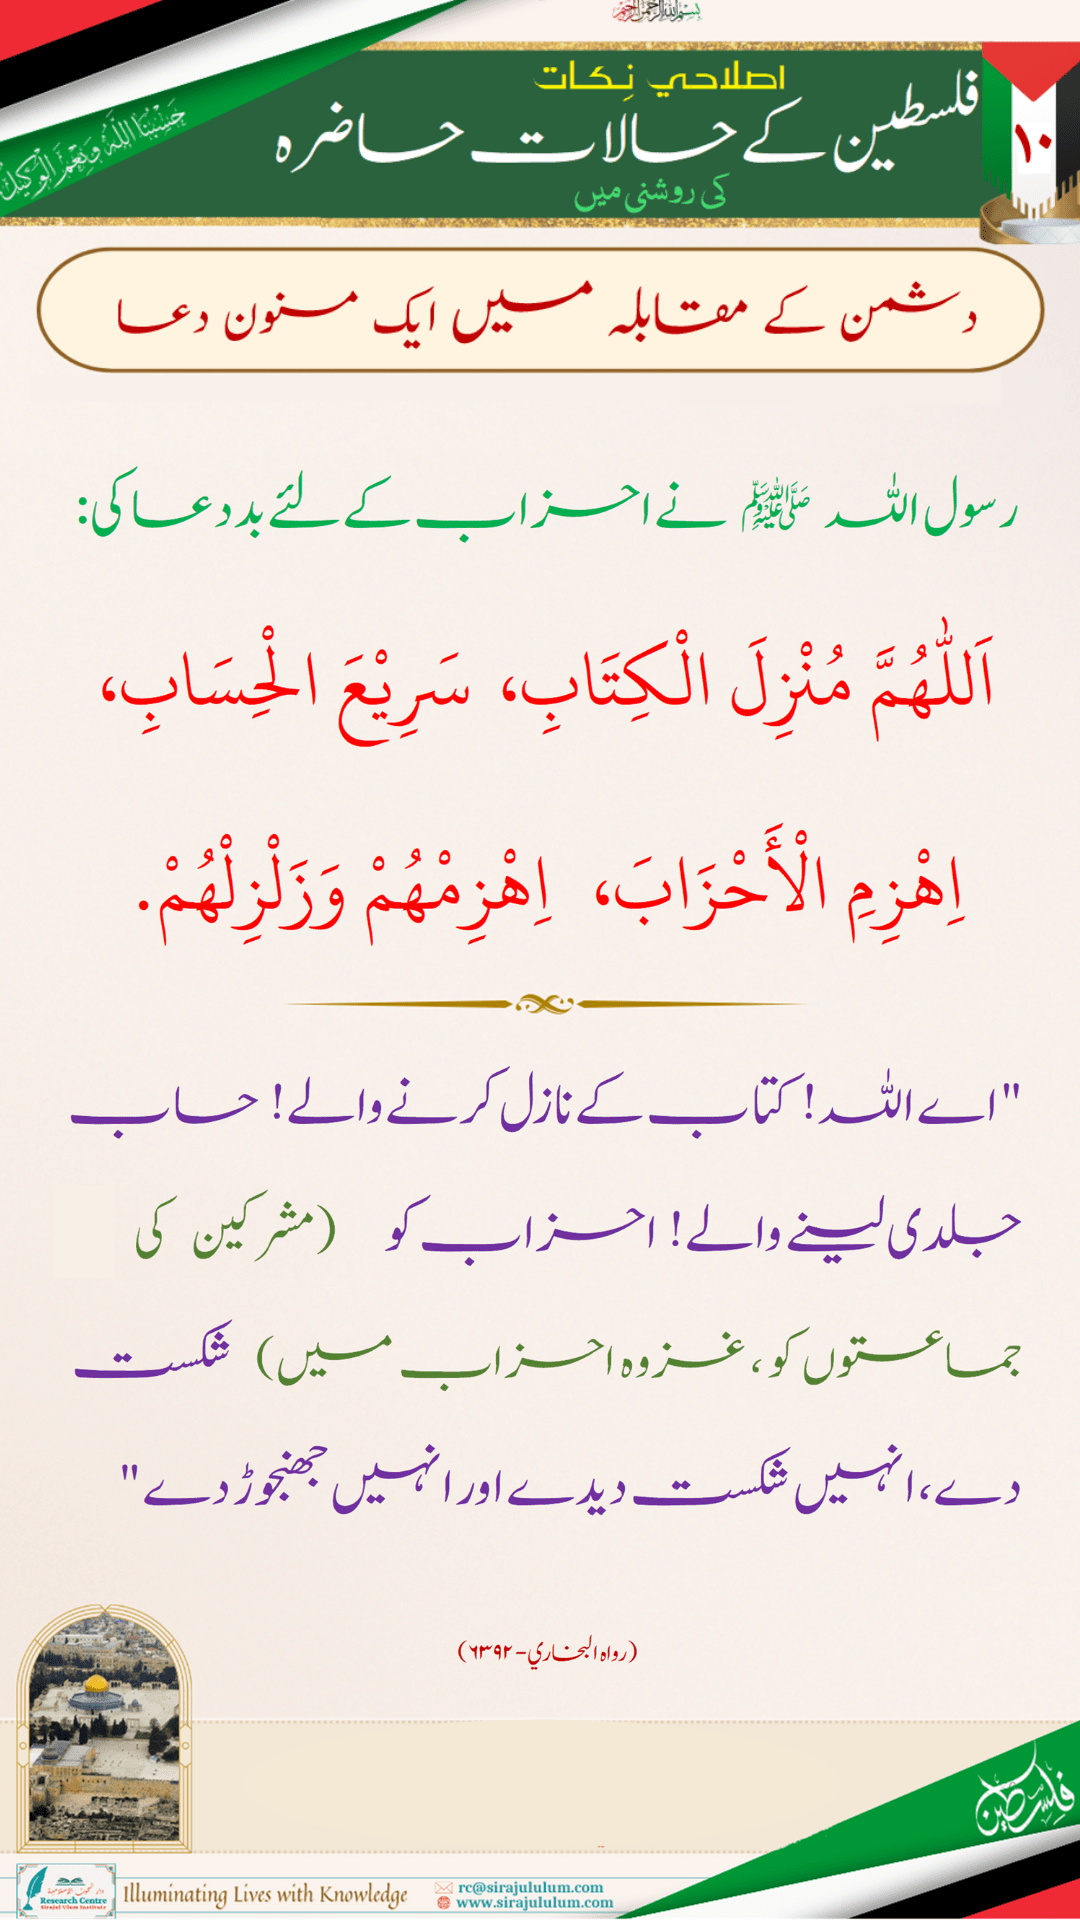 بسم الله الرحمن الرحيم
حَسْبُنَا اللَّهُ وَنِعْمَ الْوَكِيلُ
اصلاحي نِكات
فلسطین کے حالات حاضرہ
کی روشنی میں
١٠
دشمن کے مقابلہ میں ایک مسنون دعا
رسول اللہ ﷺ نے احزاب کے لئے بددعا کی:
اَللّٰهُمَّ مُنْزِلَ الْكِتَابِ، سَرِيْعَ الْحِسَابِ،
اِهْزِمِ الْأَحْزَابَ، اِهْزِمْهُمْ وَزَلْزِلْهُمْ.
"اے اللہ! کتاب کے نازل کرنے والے! حساب
جلدی لینے والے! احزاب کو (مشرکین کی
جماعتوں کو، غزوہ احزاب میں) شکست
دے، انہیں شکست دیدے اور انہیں جھنجوڑ دے"
(رواه البخاري-٦٣٩٢)
فلسطين
Research Centre
Sirajul Ulum Institute
Illuminating Lives with Knowledge
rc@sirajululum.com
www.sirajululum.com